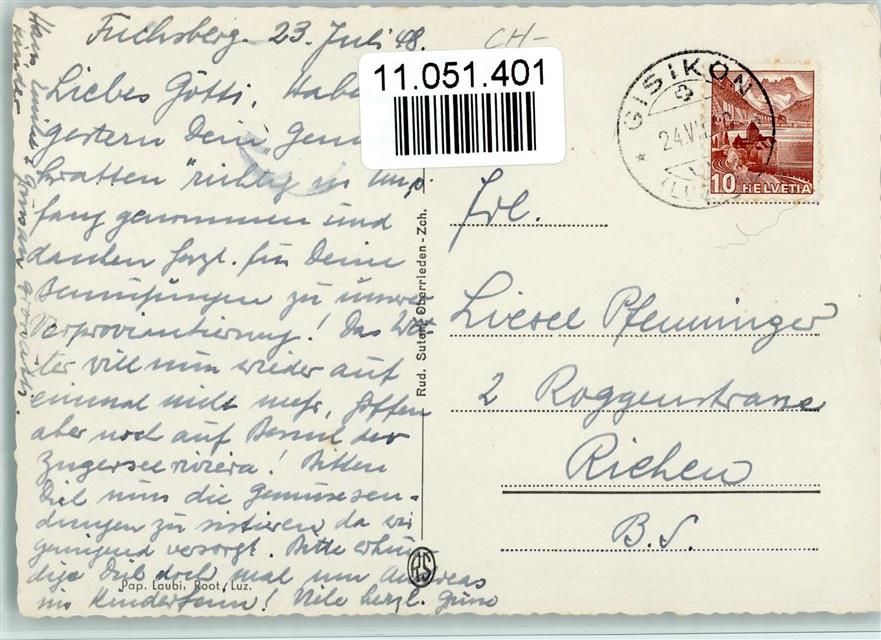 Fuchsberg. 23. Juli 48.
CH-
11.051.401
Liebes Götti, Habe
gestern Dein "Gem
kratten" richtig in Emp.
fang genommen und
danken herzl. für Deine
Bemühungen zu unsrer
Verproviantierung! Das Wet
ter will nun wieder auf
einmal nicht mehr, hoffen
aber noch auf Besuch der
Zugersee riviera! Bitten
Dich nun die Gemüsesen-
dungen zu sistieren da wir
genügend versorgt. Bitte erkun
dige Dich doch mal um Andreas
im Kinderheim! Viele herzl. Grüsse
Kinder
GISIKON
24.VII
(LUZ
10 HELVETIA
Frl.
Liesel Pfenninger
2 Roggenstrasse
Riehen
B.S.
Rud. Suter, Oberrieden-Zch.
RS
Pap. Laubi, Root/Luz.